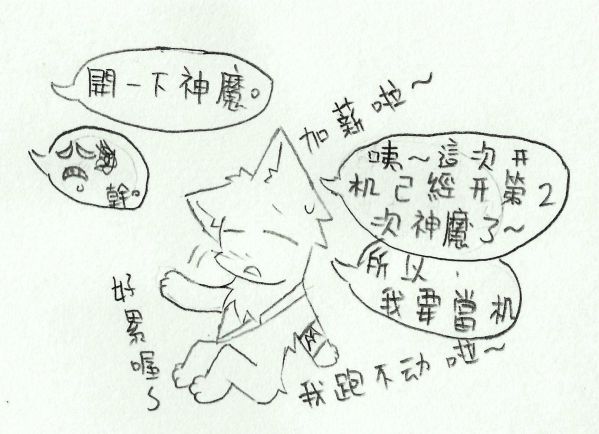 開一下神魔。
幹。
加薪啦～
咦～這次开
机已經开第2
次神魔了～
所以，
我要當机
好累喔～
我跑不动啦～